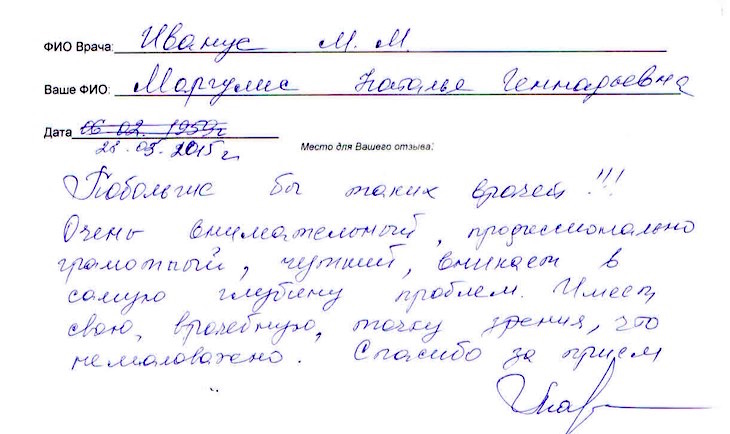 ФИО Врача: Иванус М. М.
Ваше ФИО: Маргулис Наталье Геннадьевна
Дата 06.02.1959г
28.05.2015г.
Место для Вашего отзыва:
Побольше бы таких врачей!!!
Очень внимательный, профессионально
грамотный, чуткий, вникает в
самую глубину проблем. Имеет
свою, врачебную, точку зрения, что
немаловажно. Спасибо за прием